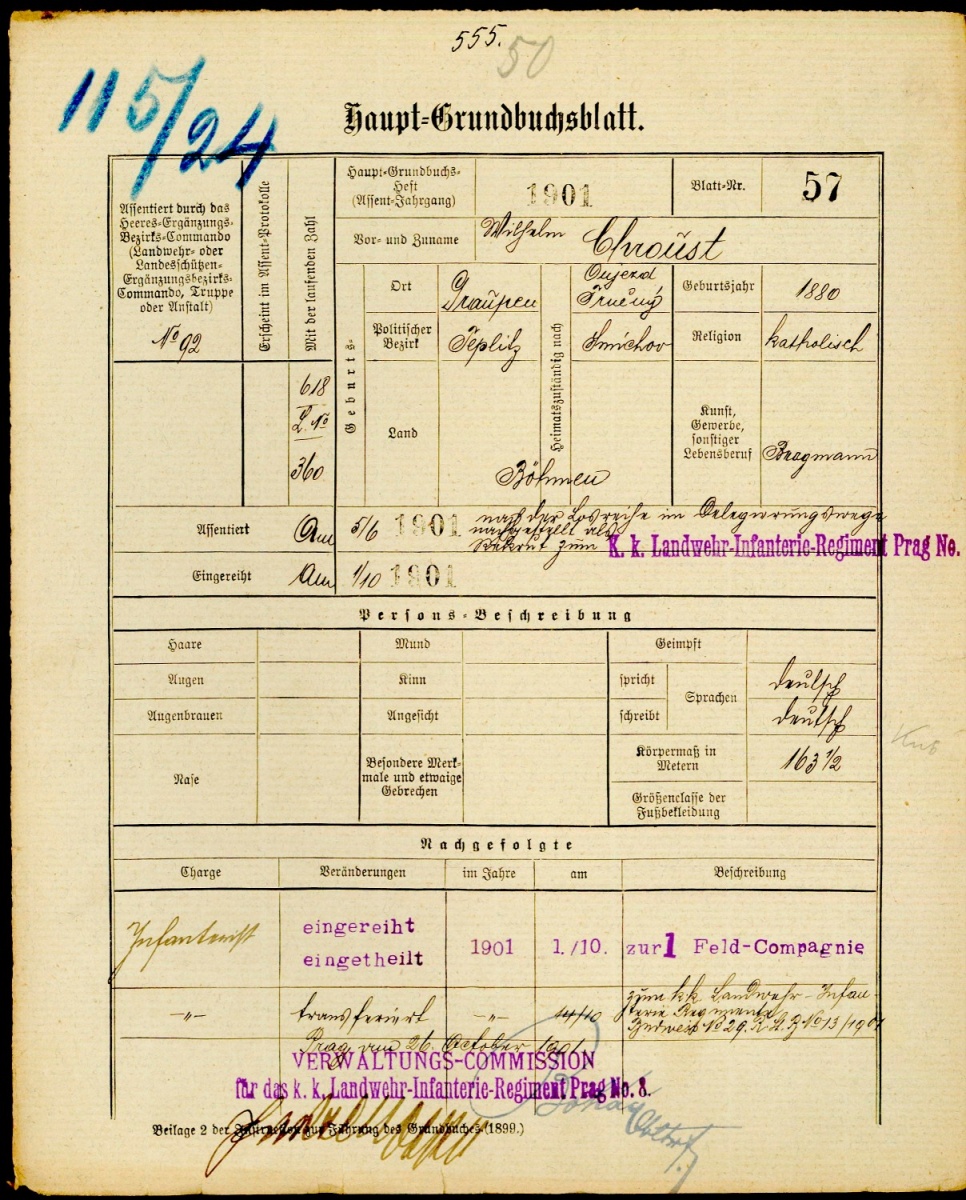 555.
50
115/24
Haupt-Grundbuchsblatt.
Assentiert durch das
Heeres-Ergänzungs-
Bezirks-Commando
(Landwehr- oder
Landesschützen-
Ergänzungsbezirks-
Commando, Truppe
oder Anstalt)
No 92
Erscheint im Assent-Protokolle
Mit der laufenden Zahl
618
L. No
360
Haupt-Grundbuchs-
Heft
(Assent-Jahrgang)
1901
Blatt-Nr.
57
Vor- und Zuname
Wilhelm Chroust
Geburts-
Ort
Graupen
Heimatszuständig nach
Oujezd
Geburtsjahr
1880
Politischer
Bezirk
Teplitz
Smichov
Religion
katholisch
Land
Böhmen
Kunst,
Gewerbe,
sonstiger
Lebensberuf
Bergmann
Assentiert
Am
5/6 1901
nach der Losreihe im Delegierungswege
nachgestellt als
Rekrut zum K. k. Landwehr-Infanterie-Regiment Prag No.
Eingereiht
Am
1/10 1901
Persons-Beschreibung
Haare
Mund
Geimpft
Augen
Kinn
spricht
Sprachen
deutsch
Augenbrauen
Angesicht
schreibt
deutsch
Nase
Besondere Merk-
male und etwaige
Gebrechen
Körpermaß in
Metern
163 1/2
Größenclasse der
Fußbekleidung
Nachgefolgte
Charge
Veränderungen
im Jahre
am
Beschreibung
Infanterist
eingereiht
eingetheilt
1901
1./10.
zur 1 Feld-Compagnie
-"-
transferiert
-"-
zum k.k. Landwehr-Infan-
terie Regimente
Budweis No 29. R.A.B No 13/1901
Prag am 26. October 1901
VERWALTUNGS-COMMISSION
für das k. k. Landwehr-Infanterie-Regiment Prag No. 8.
Oblt
Beilage 2 der Instruction zur Führung des Grundbuches (1899.)